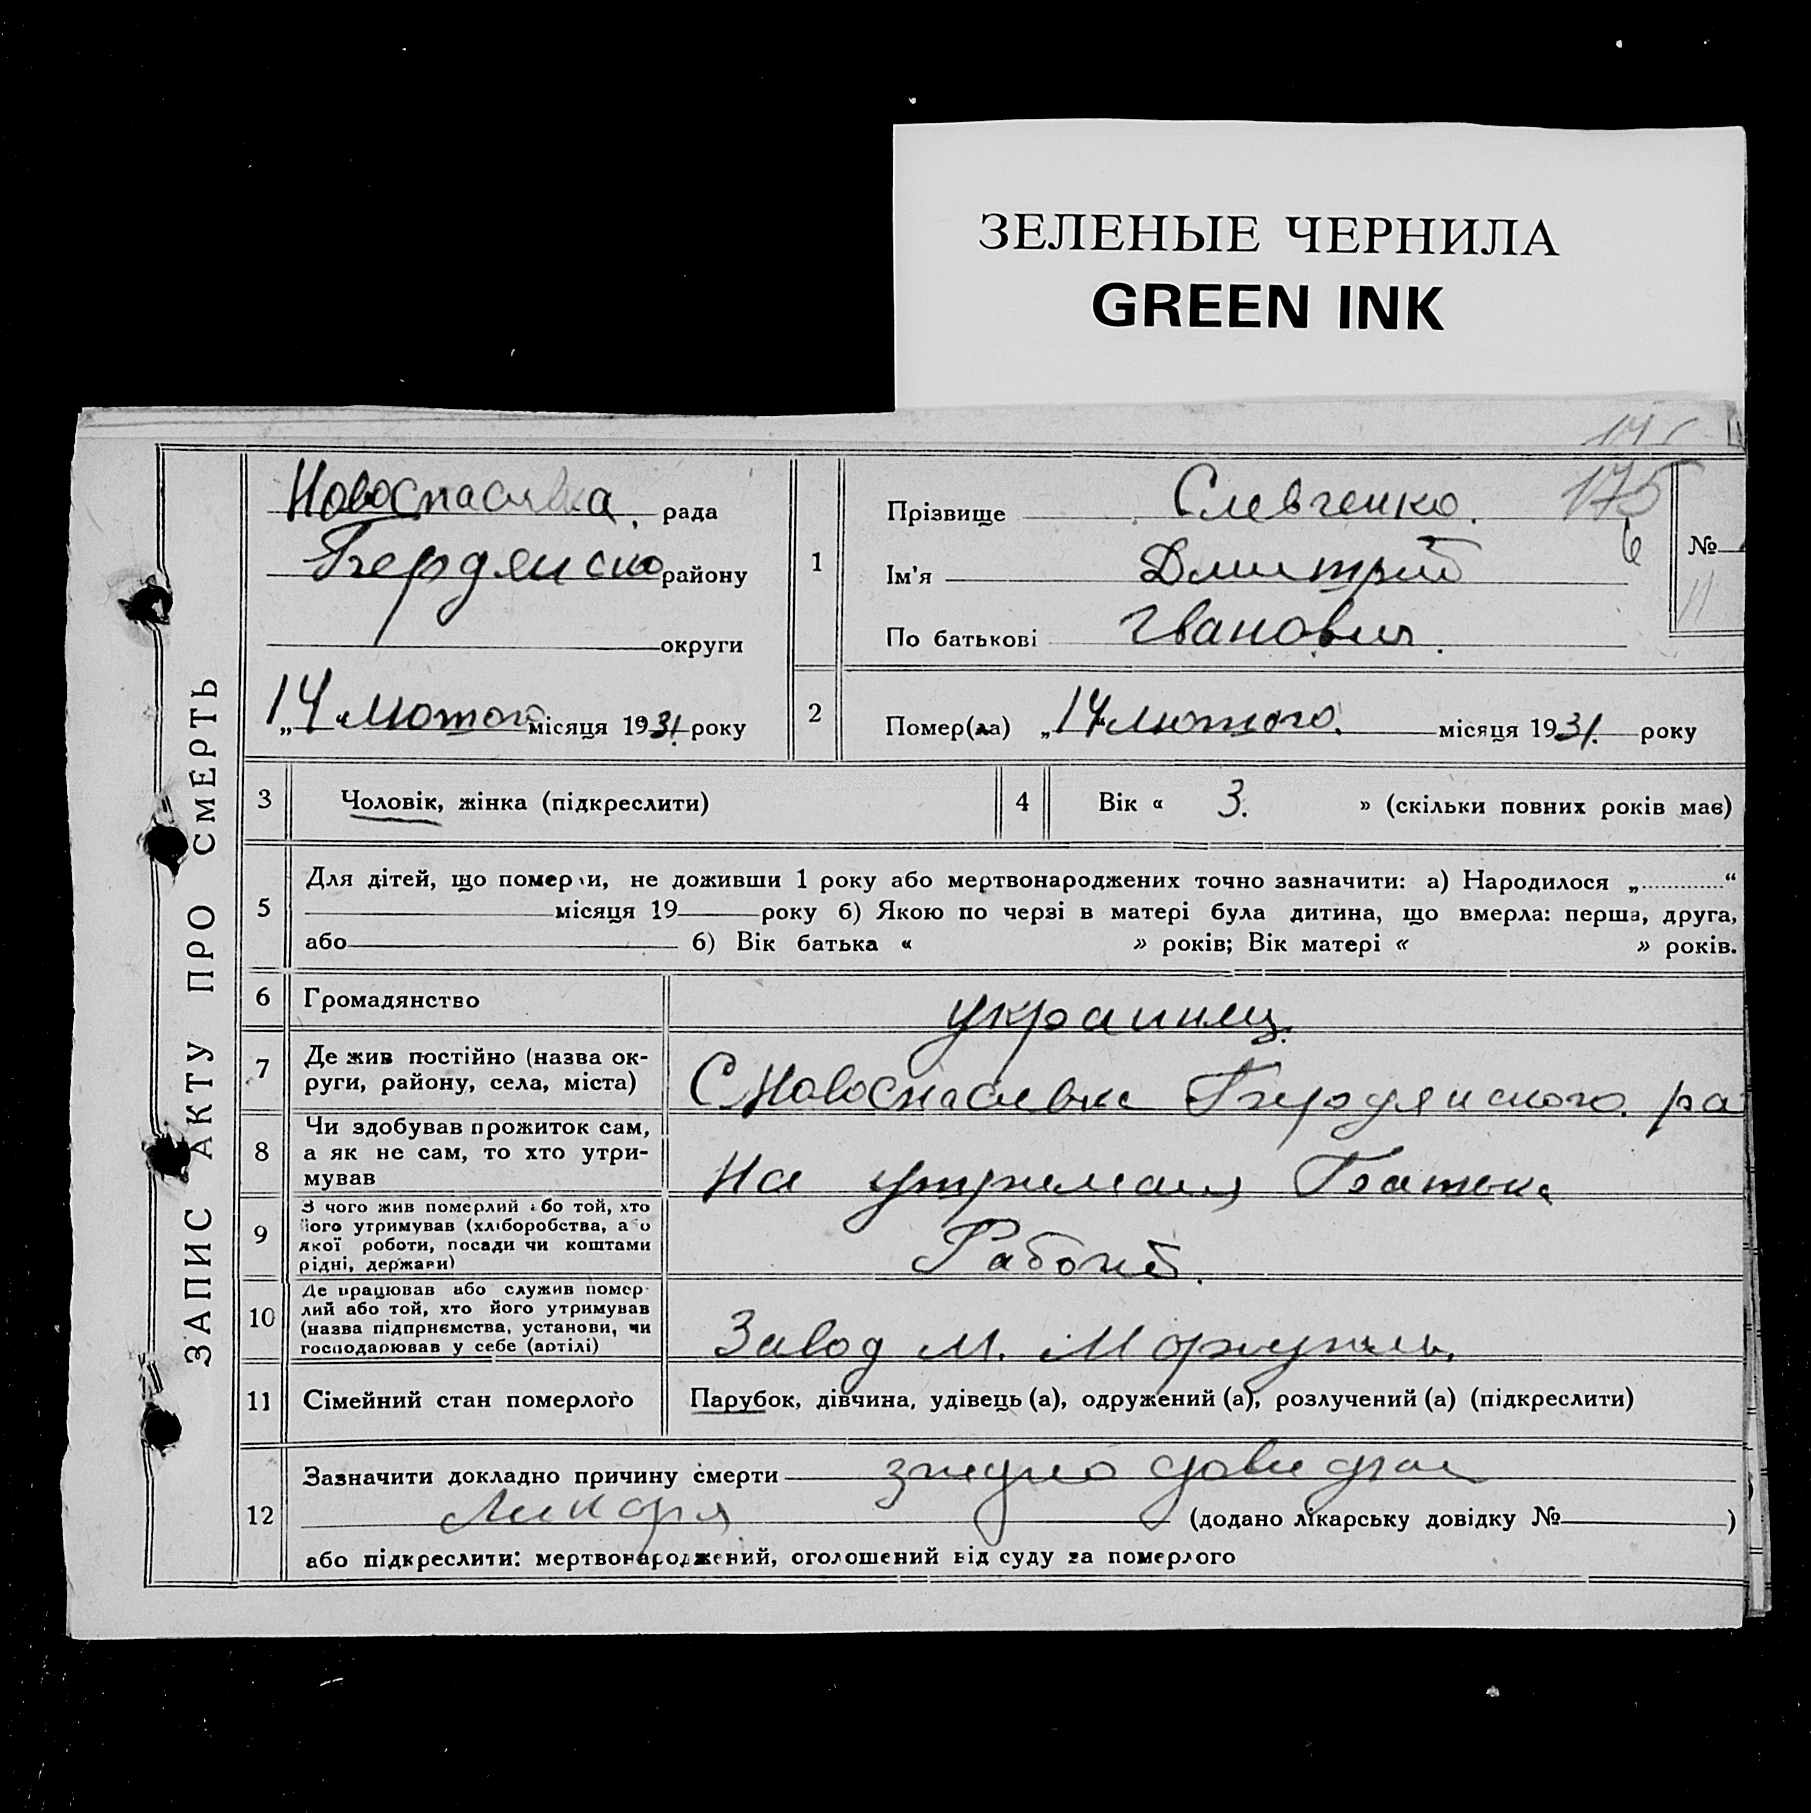 ЗЕЛЕНЫЕ ЧЕРНИЛА
GREEN INK
175
ЗАПИС АКТУ ПРО СМЕРТЬ
Новоспасивка рада
Бердянско району
округи
„14 " Лютого місяця 1931. року
1
Прізвище Слевченко.
Ім'я Дмитрий
По батькові Иванович.
№
11
2
Помер(ла) „14 " лютого. місяця 1931. року
3 Чоловік, жінка (підкреслити)
4 Вік « 3. » (скільки повних років має)
5 Для дітей, що померли, не доживши 1 року або мертвонароджених точно зазначити: а) Народилося „ “
місяця 19 року б) Якою по черзі в матері була дитина, що вмерла: перша, друга,
або б) Вік батька « » років; Вік матері « » років.
6 Громадянство украинец.
7 Де жив постійно (назва ок-
руги, району, села, міста) С Новоспасевка Бердянского. ра
8 Чи здобував прожиток сам,
а як не сам, то хто утри-
мував На утримания Батька
9 З чого жив померлий або той, хто
його утримував (хліборобства, або
якої роботи, посади чи коштами
рідні, держави) Рабочий.
10 Де працював або служив помер-
лий або той, хто його утримував
(назва підприємства, установи, чи
господарював у себе (артілі) Завод М.
11 Сімейний стан померлого Парубок, дівчина, удівець (а), одружений (а), розлучений (а) (підкреслити)
12 Зазначити докладно причину смерти згидно
Ликоря (додано лікарську довідку № )
або підкреслити: мертвонароджений, оголошений від суду за померлого